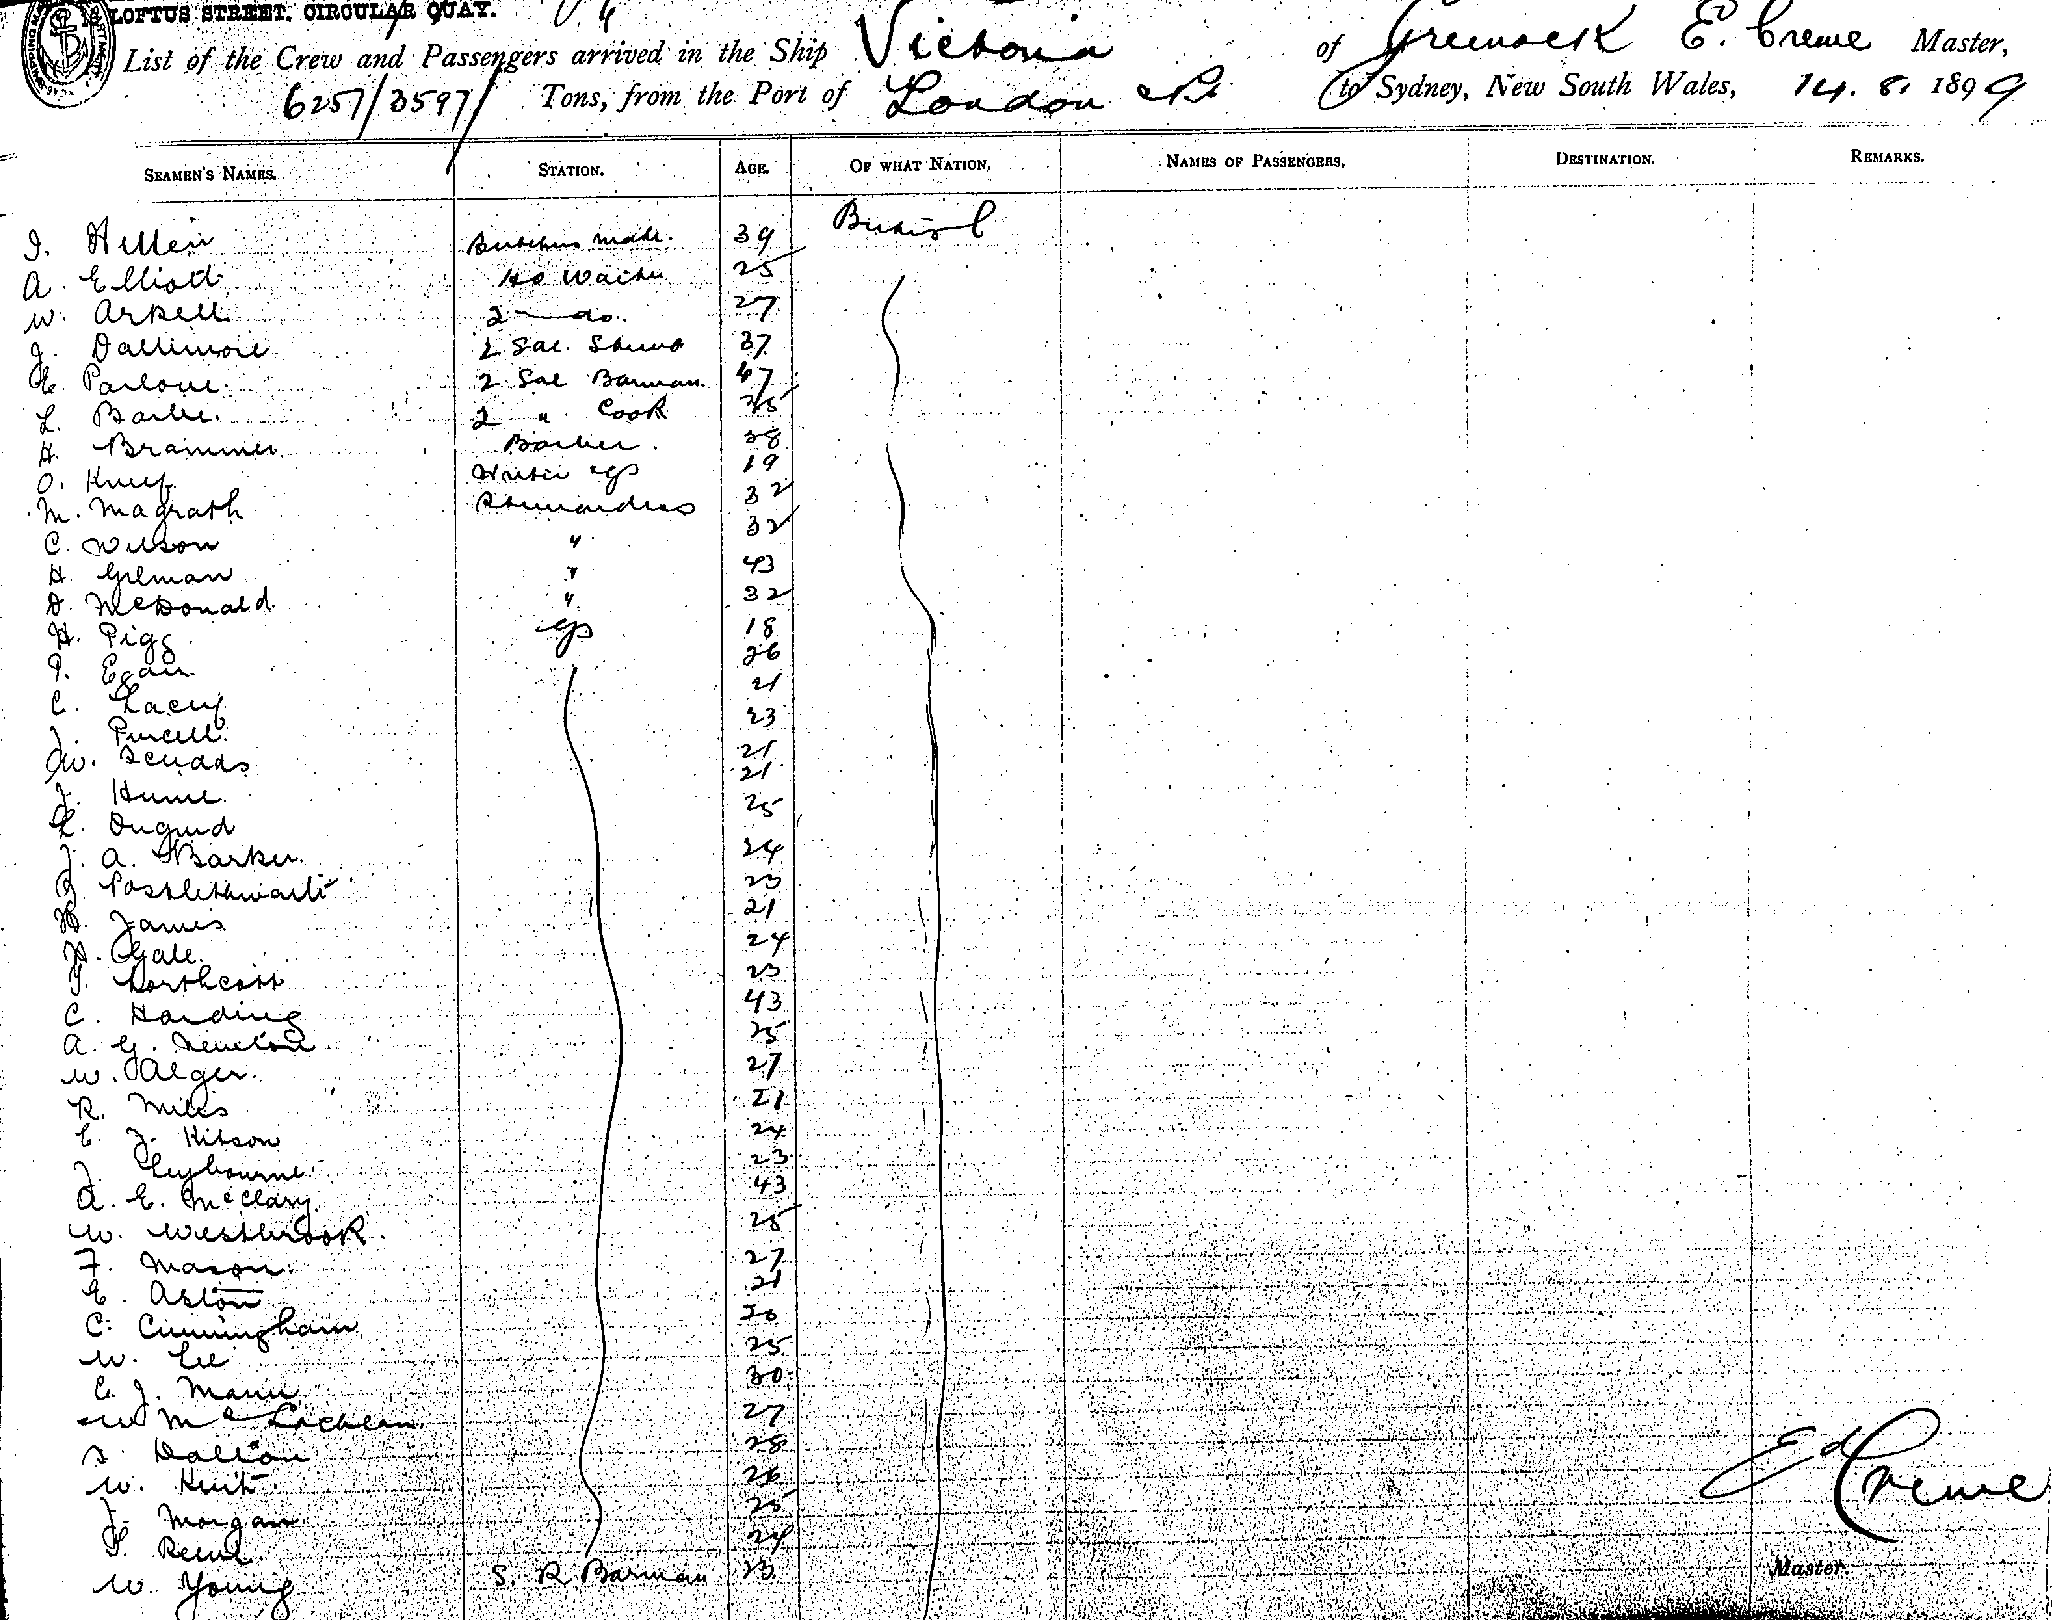 LOFTUS STREET. CIRCULAR QUAY.
List of the Crew and Passengers arrived in the Ship Victoria of Greenock E. Crewe Master,
6257/3597/ Tons, from the Port of London &c to Sydney, New South Wales, 14. 8. 1899
SEAMEN'S NAMES. STATION. AGE. OF WHAT NATION. NAMES OF PASSENGERS. DESTINATION. REMARKS.
Butchers mate. 39 British
A. Elliott 25
W. Arkell 2 do. 27
J. Dallimore 2 Sal. 37
E. 2 Sal Barman 47
L. 2 " Cook 25
H. Brammer Barber. 38
O. 19
M. Magrath Stewardess 32
C. Wilson " 32
H. Gilman " 43
D. McDonald " 32
H. Pigg gs 18
P. Egan 26
C. Lacey 21
J. Purcell 23
W. 21
J. Hume 21
Duguid 25
J. A. Barker 24
Postlethwaite 23
H. James 21
H. Gale. 24
Northcott 23
C. Harding 43
A. G. Newton 25
W. Alger. 27
R. Miles 21
E. J. Kitson 24
J. Leybourne 23
A. E. McClary 43
W. Westbrook. 25
F. Mason 27
E. Aston 21
C. Cunningham 20
W. Lee 25
E. J. Mann 30
W McLachlan 27
S. Dalton 28
W. 26
J. Morgan 25
24
W. Young S. R Barman 23
Ed Crewe
Master.